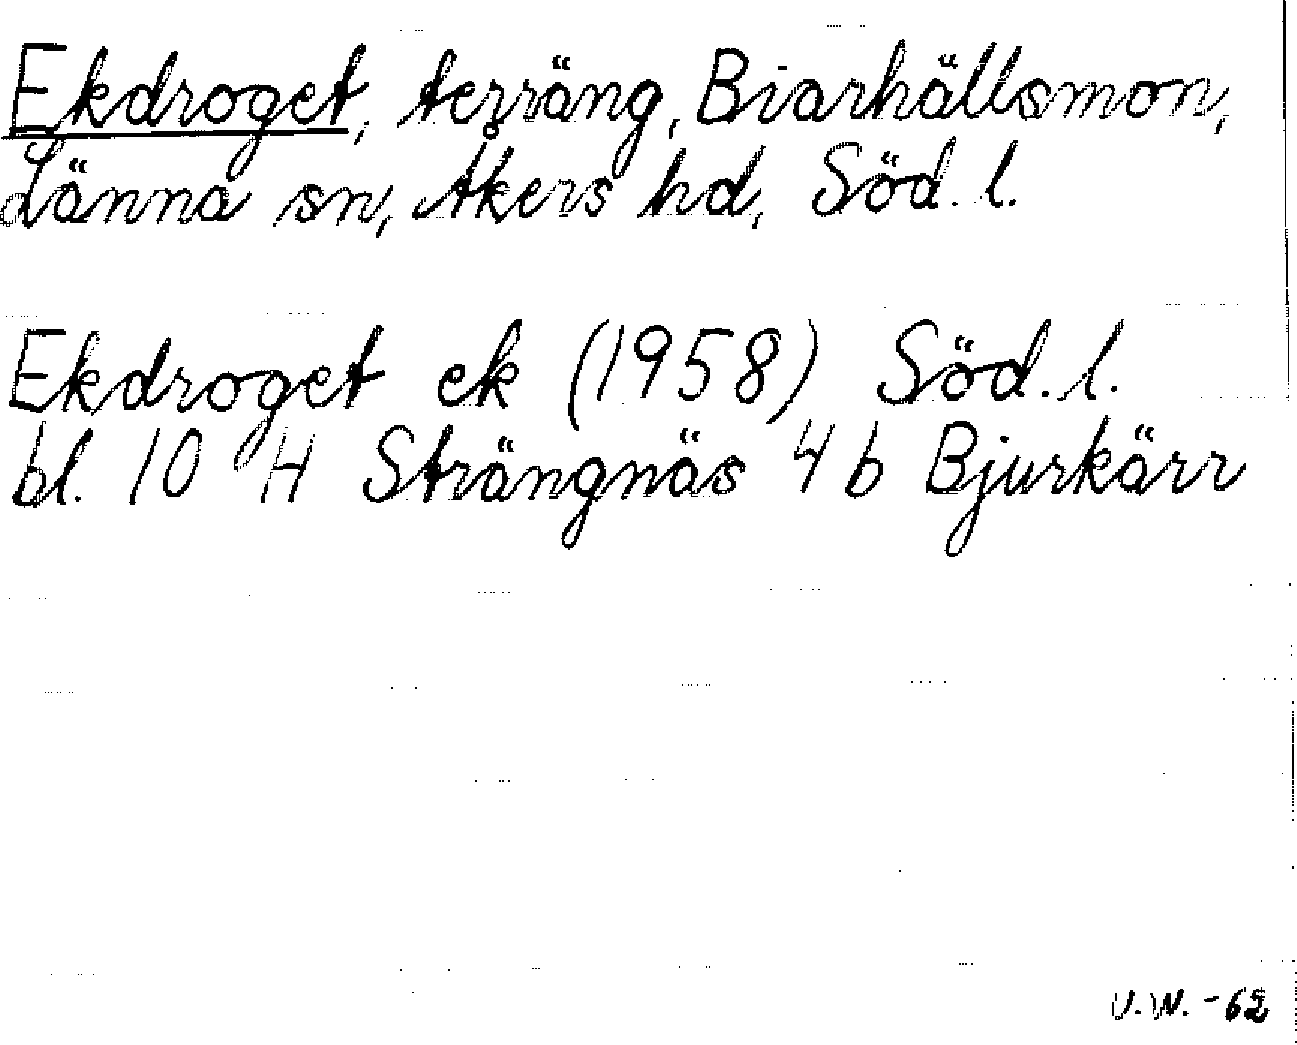 Ekdroget, terräng, Biarhällsmon,
Länna sn, Åkers hd, Söd. l.
Ekdroget ek (1958) Söd. l.
bl. 10 H Strängnäs 4 b Bjurkärr
U.W. -62